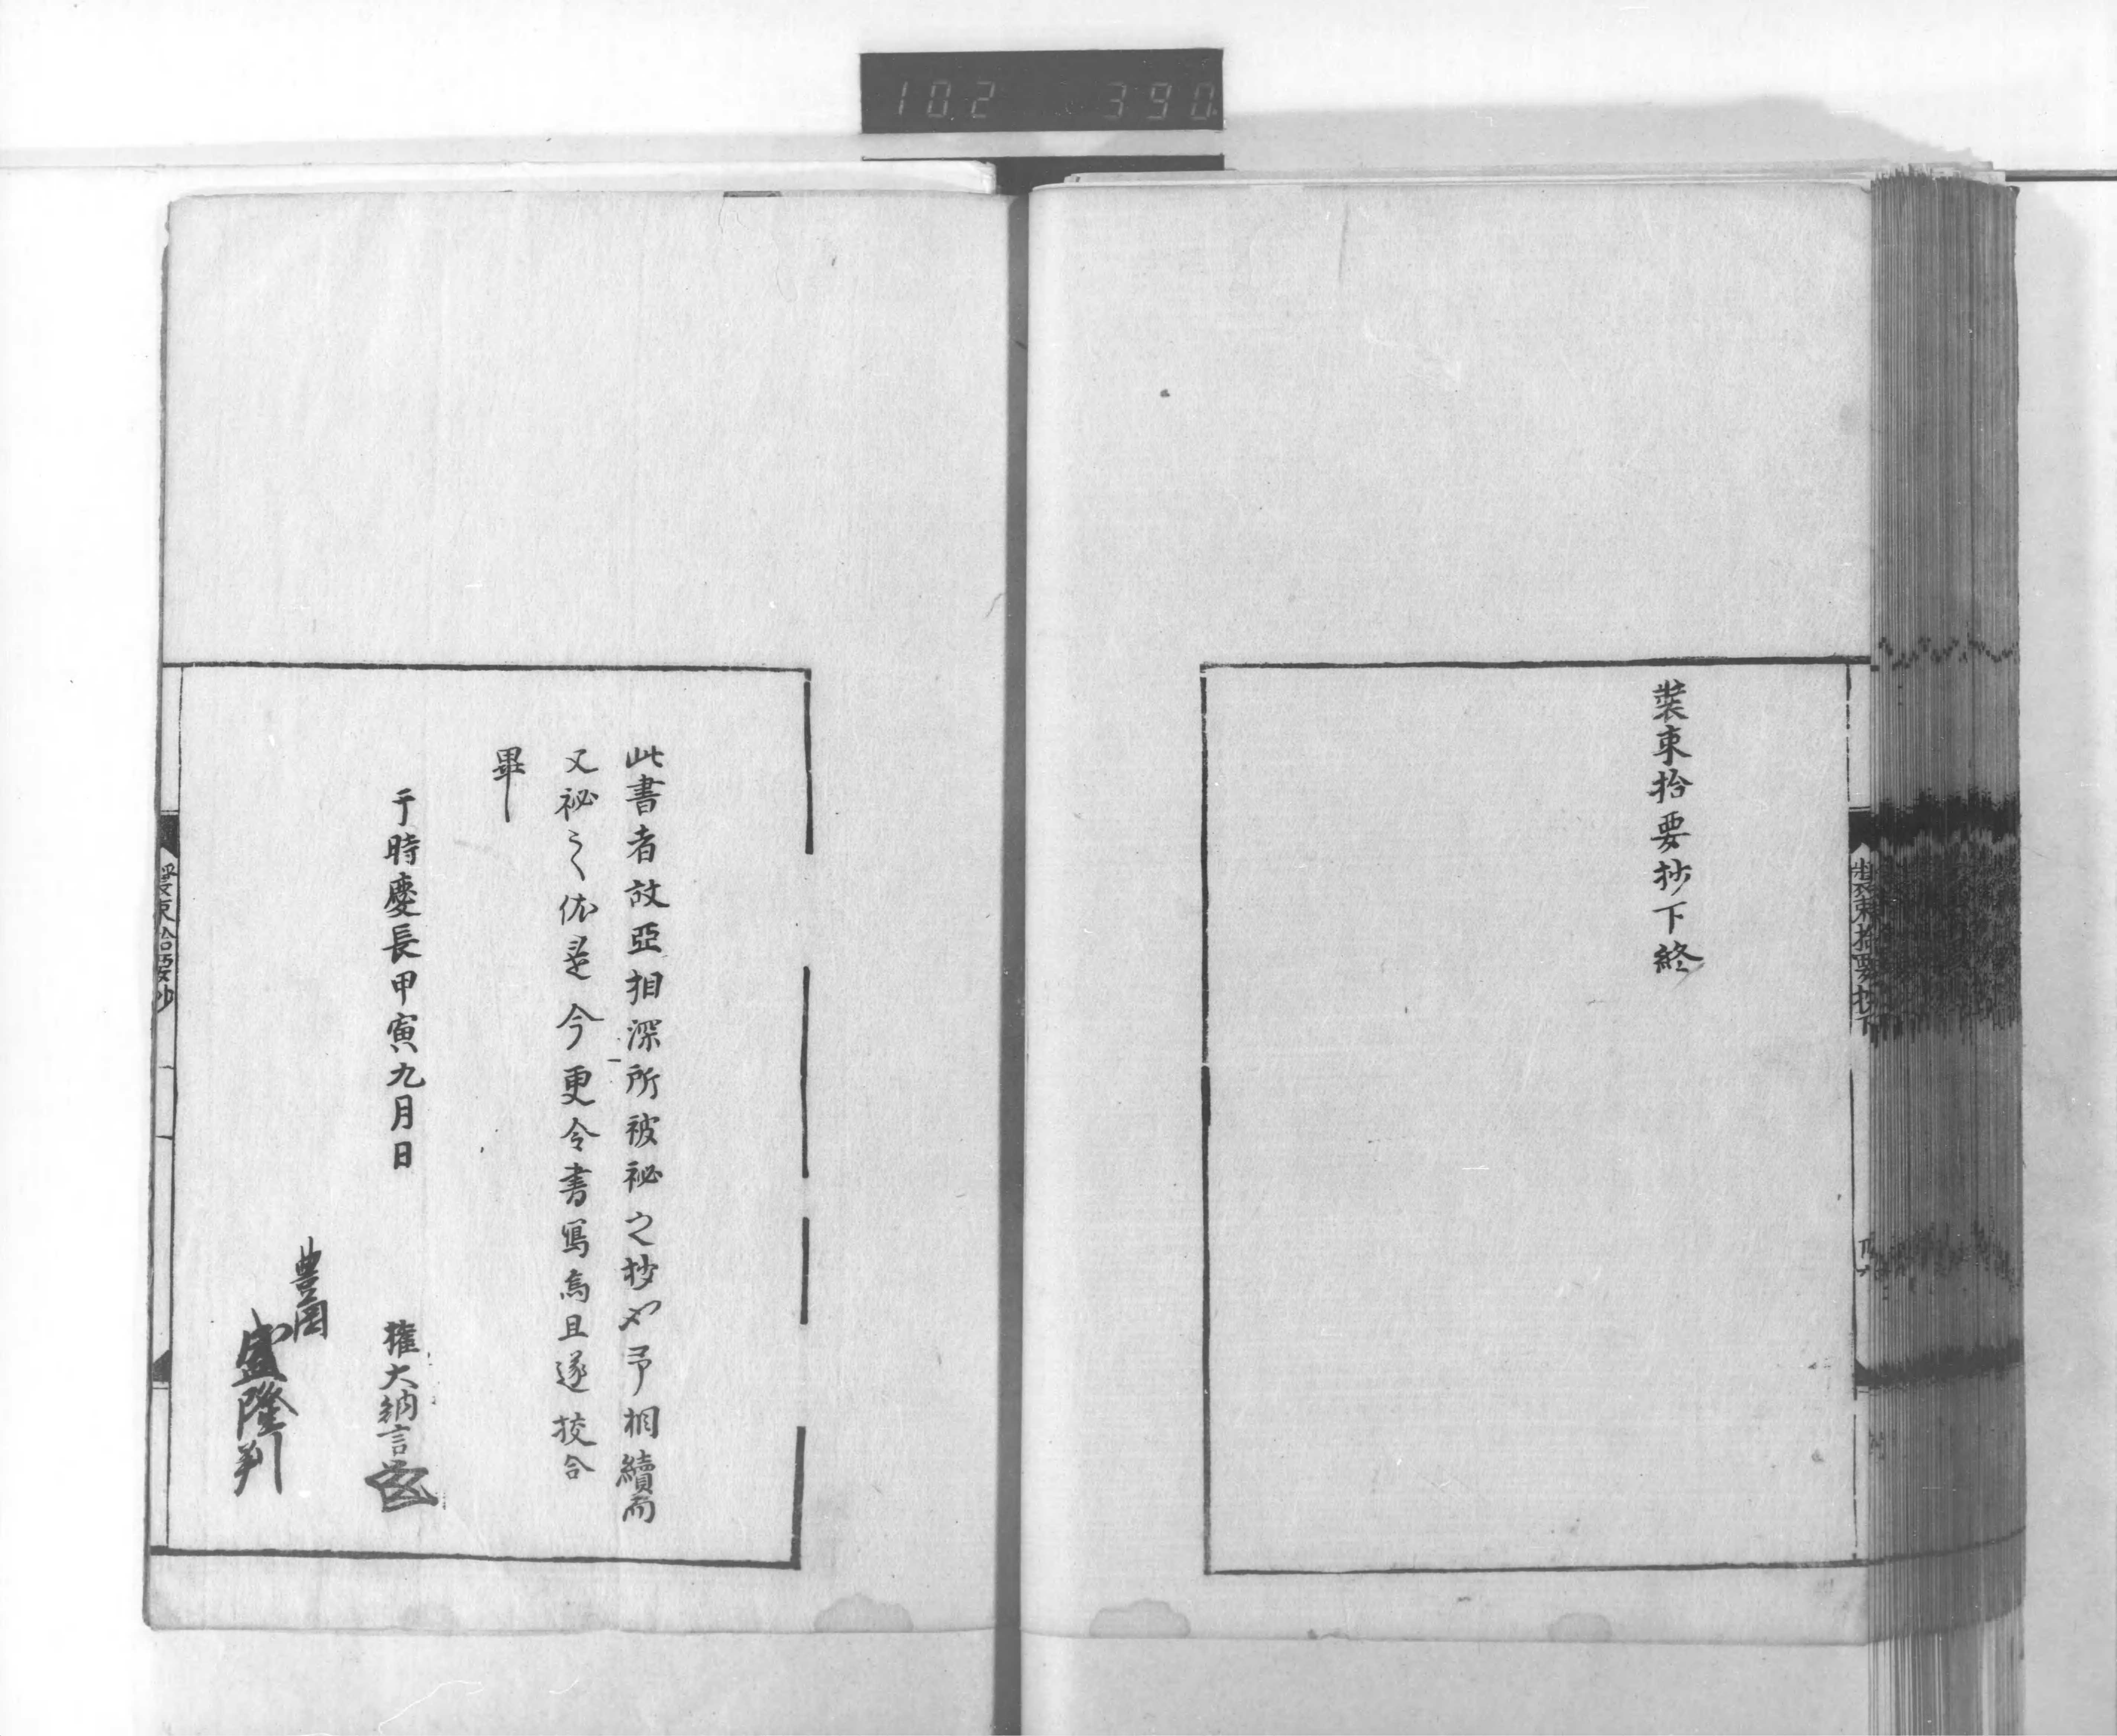 102 390
裝束拾要抄下終
裝束拾要抄下
此書者故亞相深所被秘之抄也予相續而
又秘之依是今更令書寫焉且遂挍合
畢
于時慶長甲寅九月日
權大納言
豊岡
盛隆判
裝束拾要抄